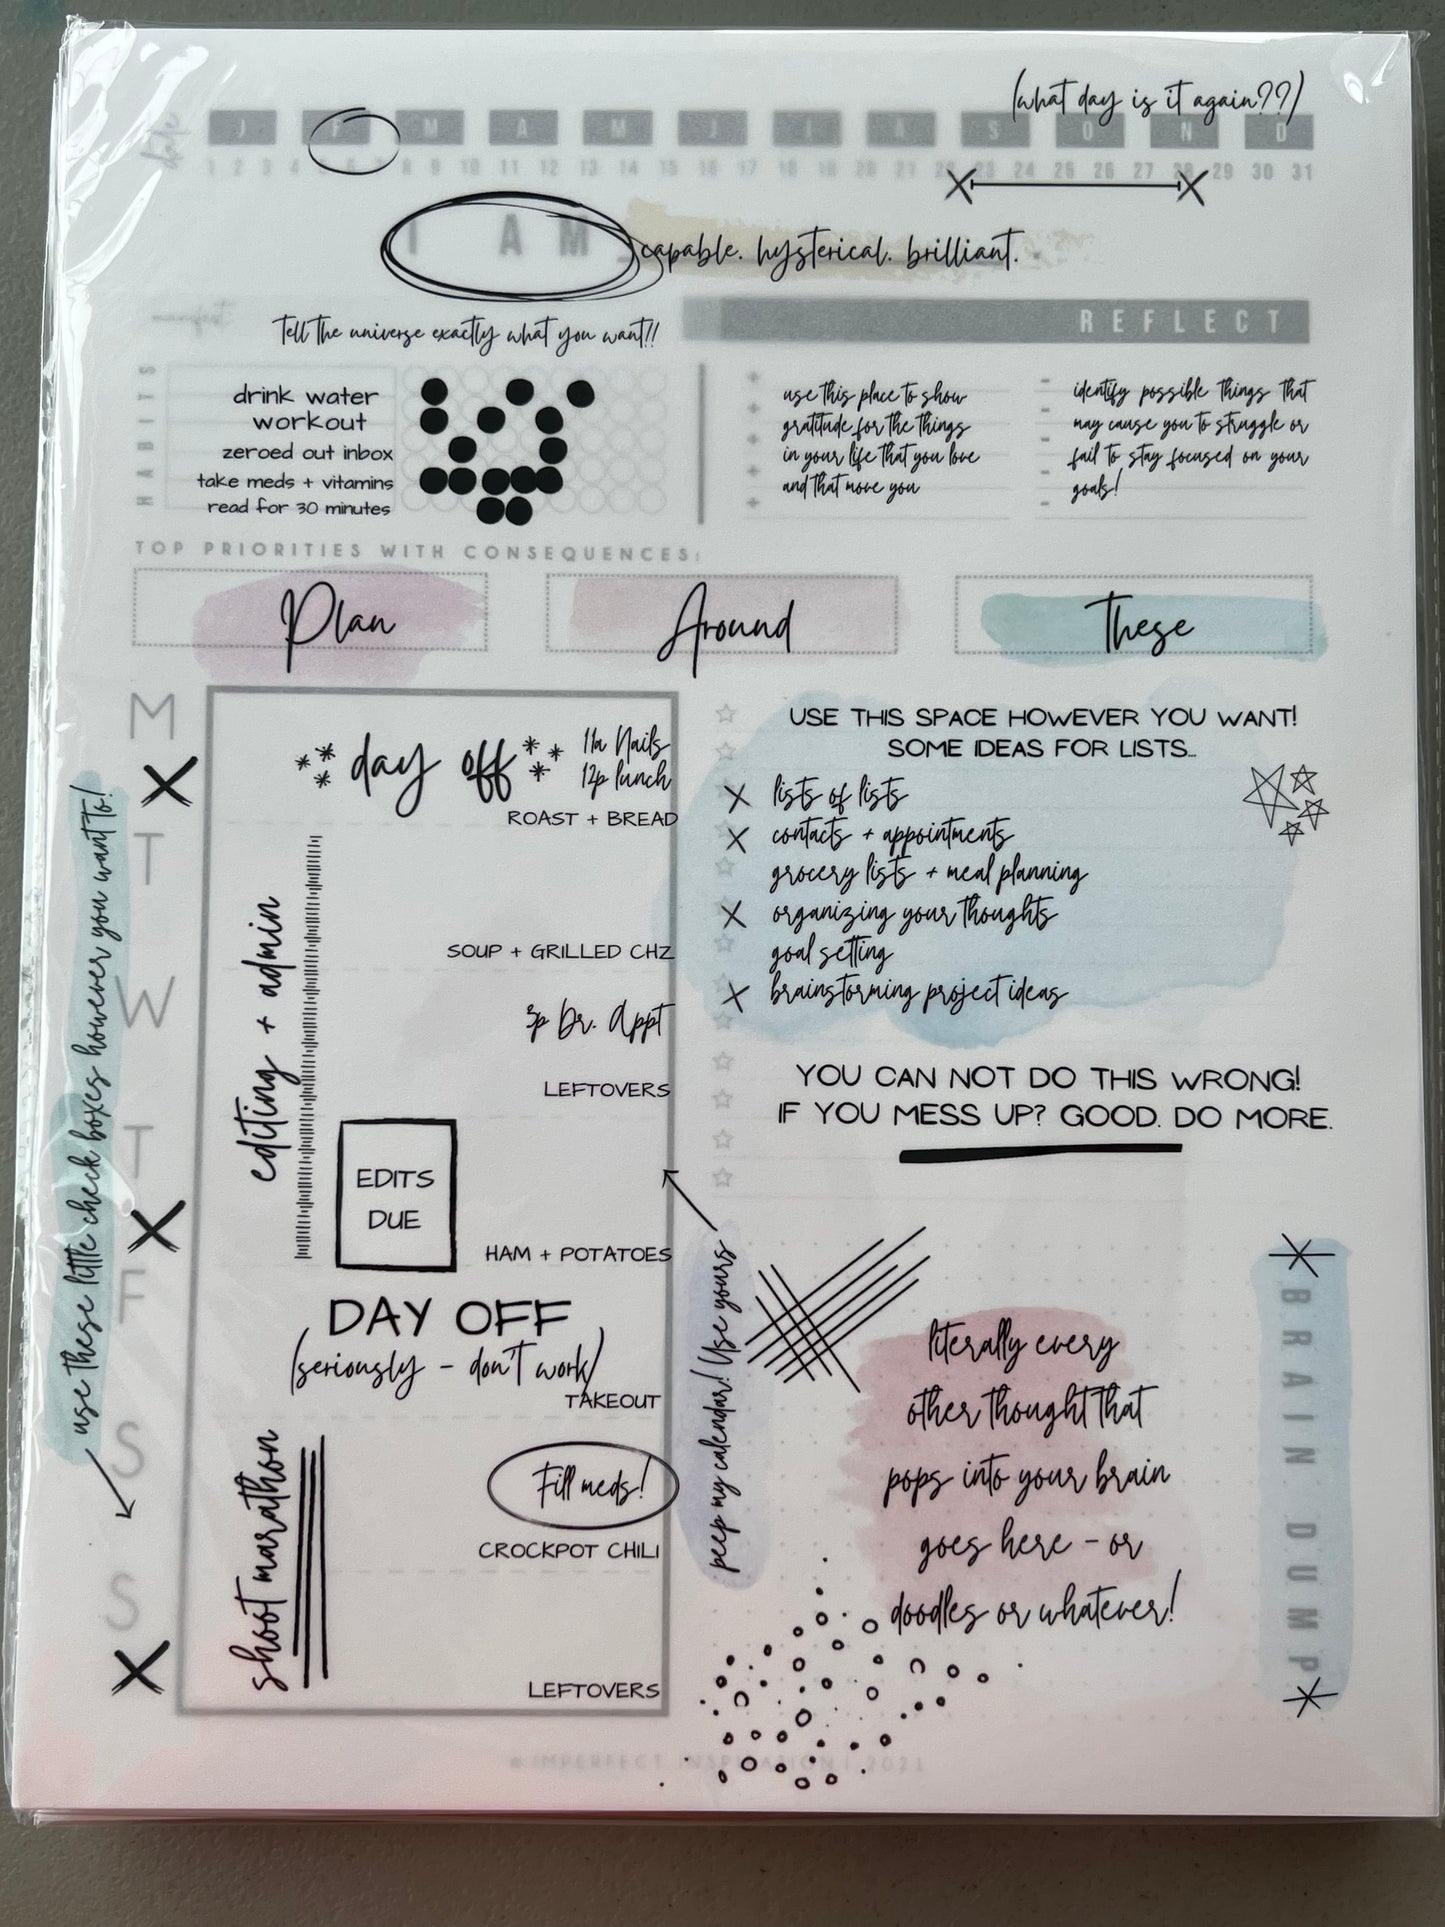 (what day is it again??)
date
J F M A M J J A S O N D
1 2 3 4 5 6 7 8 9 10 11 12 13 14 15 16 17 18 19 20 21 22 23 24 25 26 27 28 29 30 31
I AM capable. hysterical. brilliant.
Tell the universe exactly what you want!!
REFLECT
HABITS
drink water
workout
zeroed out inbox
take meds + vitamins
read for 30 minutes
use this place to show
gratitude for the things
in your life that you love
and that move you
identify possible things that
may cause you to struggle or
fail to stay focused on your
goals!
TOP PRIORITIES WITH CONSEQUENCES:
Plan
Around
These
use these little check boxes however you want to!
M
T
W
T
F
S
S
day off
11a Nails
12p lunch
ROAST + BREAD
editing + admin
SOUP + GRILLED CHZ
3p Dr. Appt
LEFTOVERS
EDITS
DUE
HAM + POTATOES
DAY OFF
(seriously - don't work)
TAKEOUT
shoot marathon
Fill meds!
CROCKPOT CHILI
LEFTOVERS
USE THIS SPACE HOWEVER YOU WANT!
SOME IDEAS FOR LISTS...
lists of lists
contacts + appointments
grocery lists + meal planning
organizing your thoughts
goal setting
brainstorming project ideas
YOU CAN NOT DO THIS WRONG!
IF YOU MESS UP? GOOD. DO MORE.
peep my calendar! Use yours
literally every
other thought that
pops into your brain
goes here - or
doodles or whatever!
BRAIN DUMP
IMPERFECT INSPIRATION | 2021